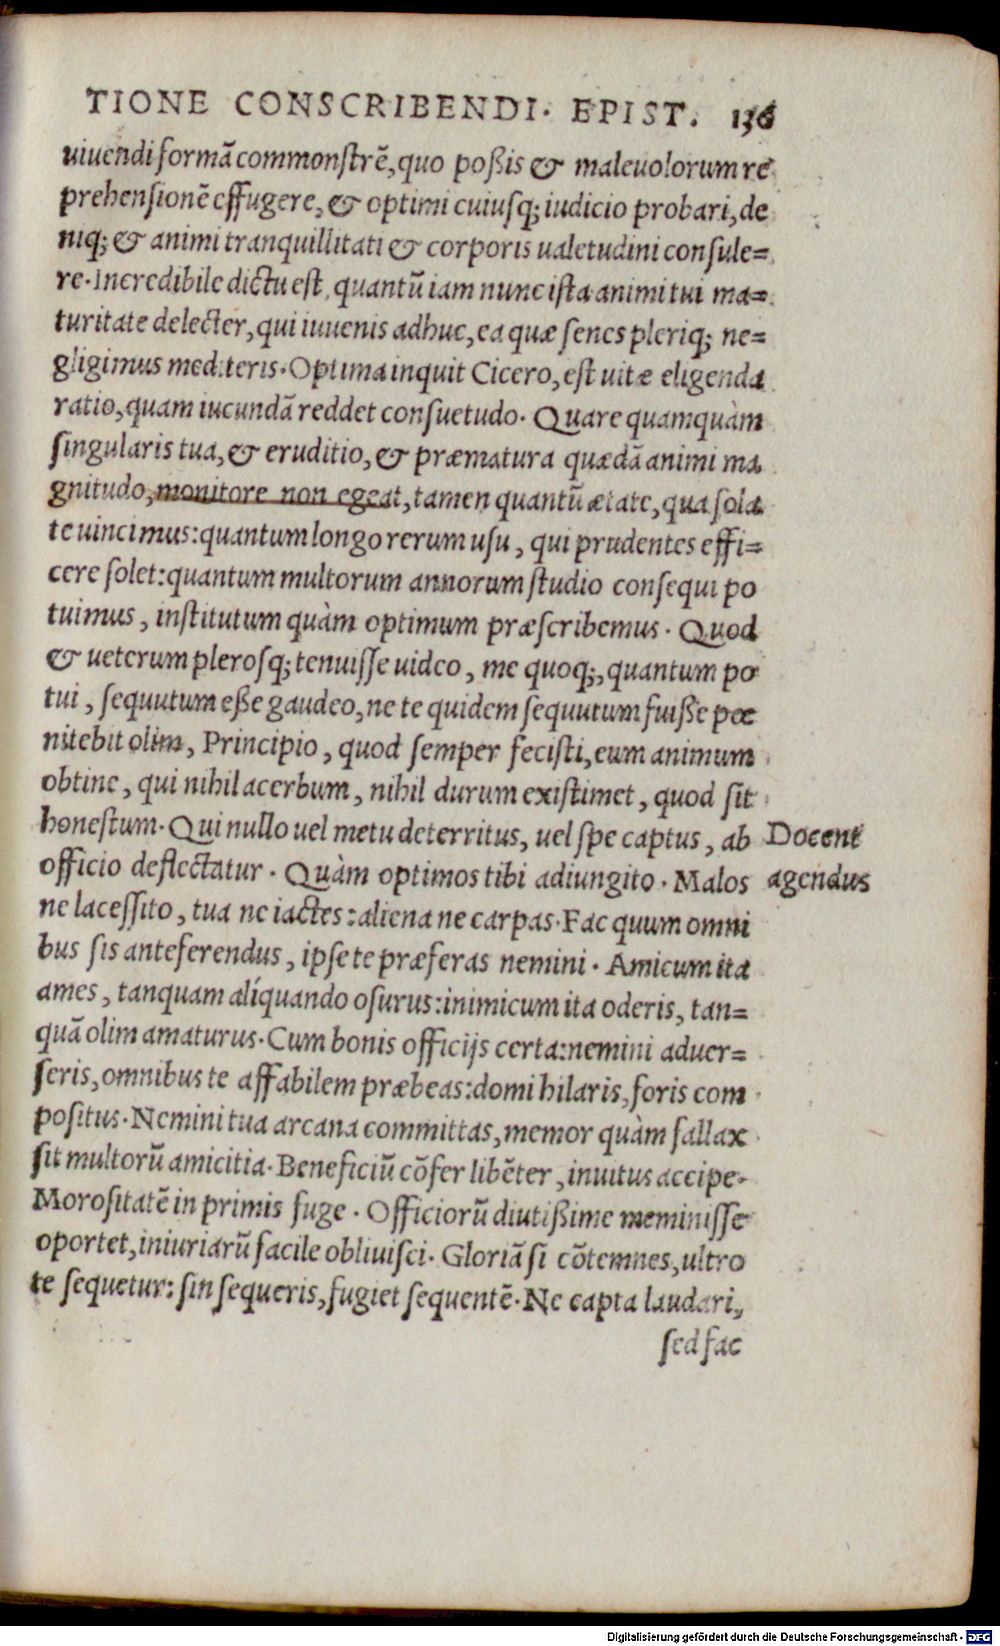 TIONE CONSCRIBENDI. EPIST. 136
uiuendi formã commonstrẽ, quo poßis & maleuolorum re
prehensionẽ effugere, & optimi cuiusq; iudicio probari, de
niq; & animi tranquillitati & corporis ualetudini consule=
re. Incredibile dictu est, quantũ iam nunc ista animi tui ma=
turitate delecter, qui iuuenis adhuc, ea quæ senes pleriq; ne=
gligimus mediteris. Optima inquit Cicero, est uitæ eligenda
ratio, quam iucundã reddet consuetudo. Quare quamquàm
singularis tua, & eruditio, & præmatura quædã animi ma
gnitudo, monitore non egeat, tamen quantũ ætate, qua sola
te uincimus: quantum longo rerum usu, qui prudentes effi=
cere solet: quantum multorum annorum studio consequi po
tuimus, institutum quàm optimum præscribemus. Quod
& ueterum plerosq; tenuisse uideo, me quoq;, quantum po
tui, sequutum eße gaudeo, ne te quidem sequutum fuiße pœ
nitebit olim, Principio, quod semper fecisti, eum animum
obtine, qui nihil acerbum, nihil durum existimet, quod sit
honestum. Qui nullo uel metu deterritus, uel spe captus, ab
officio deflectatur. Quàm optimos tibi adiungito. Malos
ne lacessito, tua ne iactes: aliena ne carpas. Fac quum omni
bus sis anteferendus, ipse te præferas nemini. Amicum ita
ames, tanquam alíquando osurus: inimicum ita oderis, tan=
quã olim amaturus. Cum bonis officijs certa: nemini aduer=
seris, omnibus te affabilem præbeas: domi hilaris, foris com
positus. Nemini tua arcana committas, memor quàm fallax
sit multorũ amicitia. Beneficiũ cõfer libẽter, inuitus accipe.
Morositatẽ in primis fuge. Officiorũ diutißime meminisse
oportet, iniuriarũ facile obliuisci. Gloriã si cõtemnes, ultro
te sequetur: sin sequeris, fugiet sequentẽ. Ne capta laudari,
sed fac
Docent
agendus
Digitalisierung gefördert durch die Deutsche Forschungsgemeinschaft - DFG